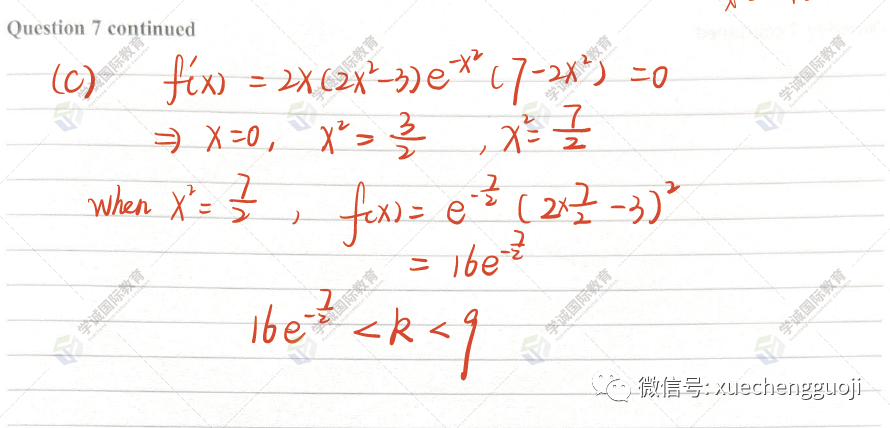 Question 7 continued
(C) f'(x) = 2x(2x²-3)e^{-x²}(7-2x²) = 0
⇒ x=0, x² = 3/2 , x² = 7/2
when x² = 7/2 , f(x) = e^{-7/2} (2×7/2 -3)²
= 16e^{-7/2}
16e^{-7/2} < k < 9
微信号: xuechengguoji
学诚国际教育